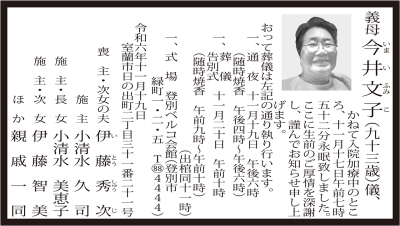 義母 今井文子(九十三歳)儀、
いま い ふみ こ
かねて入院加療中のとこ
ろ、十一月十七日午前七時
五十二分永眠致しました。
ここに生前のご厚情を深謝
し、謹んでお知らせ申し上
げます。
おって葬儀は左記の通り執り行います。
一、通夜 十一月十九日 午後六時
(随時焼香 午後四時〜午後六時)
一、葬儀
告別式 十一月二十日 午前十時
(出棺同十一時)
(随時焼香 午前九時〜午前十時)
一、式場 登別ベルコ会館(登別市
緑町一・二・五 T88 4444)
令和六年十一月十九日
室蘭市日の出町二丁目三十一番二十一号
喪主・次女の夫 伊藤秀次
い とう しゅう じ
施主 小清水久司
施主・長女 小清水美恵子
施主・次女 伊藤智美
ほか親戚一同